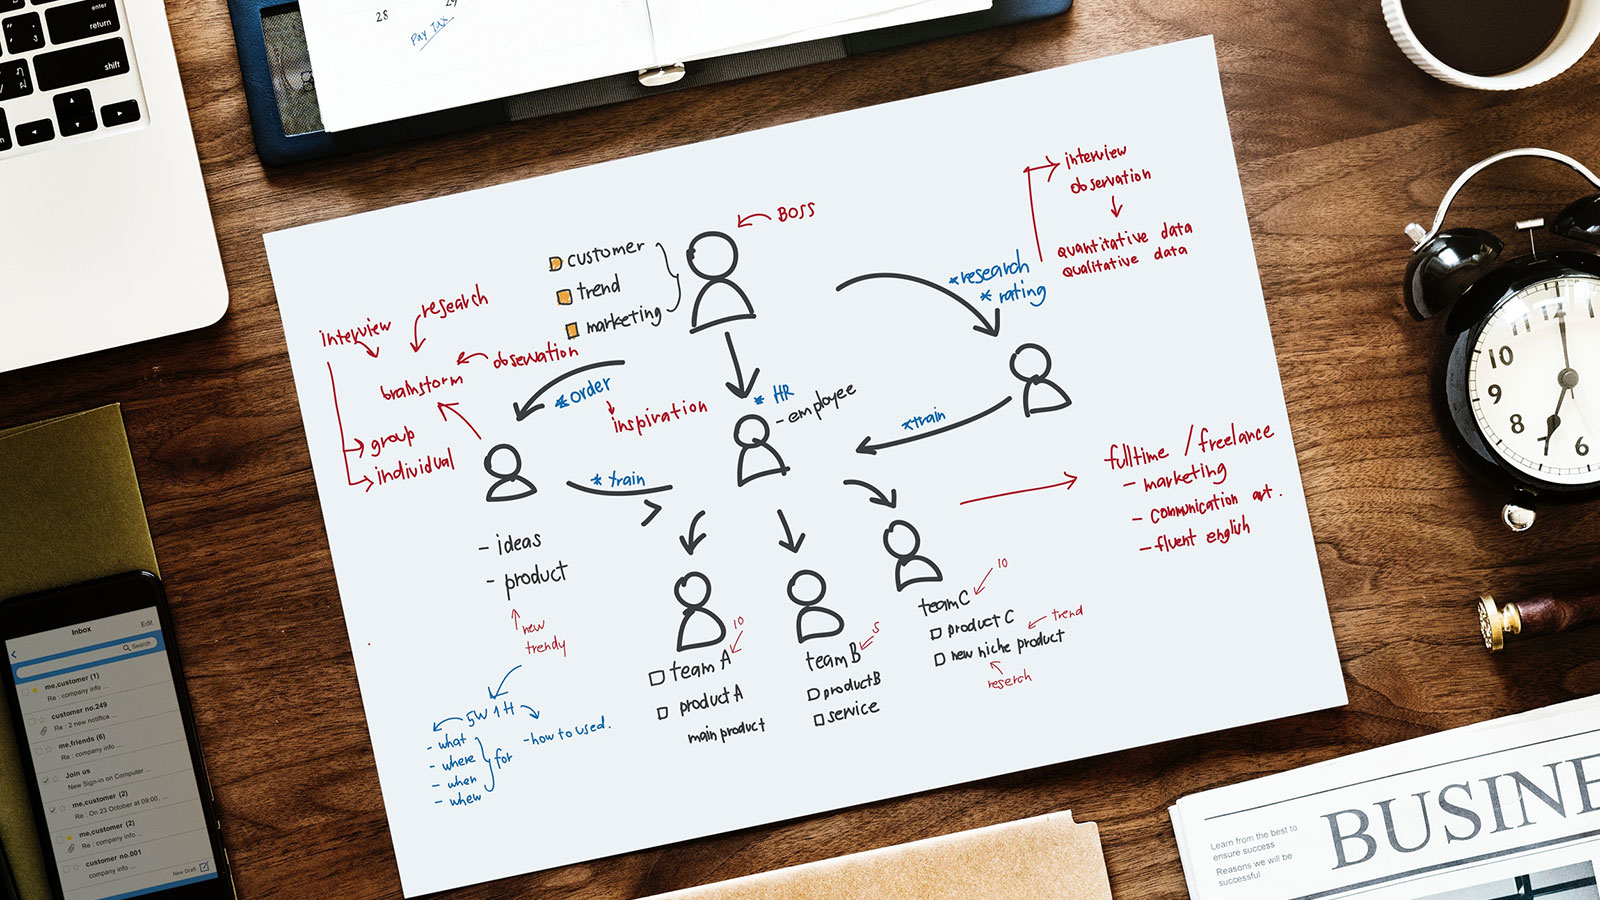 enter
return
shift
28
29
Pay Tax
BOSS
customer
trend
marketing
interview
observation
quantitative data
qualitative data
*research
* rating
research
interview
observation
brainstorm
*order
inspiration
* HR
- employee
group
individual
* train
*train
fulltime / freelance
- marketing
- communication art.
- fluent english
- ideas
- product
new
trendy
5W 1H
- what
- where
- when
- whew
for
- how to used.
10
team A
product A
main product
5
team B
product B
service
10
team C
product C
trend
new niche product
reserch
10
9
8
7
6
Inbox
Edit
Search
me,customer (1)
Re : company info ...
customer no.249
Re : 2 new notifica ...
me,friends (6)
Re : company info ...
Join us
New Sign-in on Computer ...
me,customer (2)
Re : On 23 October at 09:00, ...
me,customer (2)
Re : company info ...
customer no.001
company info ...
New Draft
Learn from the best to
ensure success
Reasons we will be
successful
BUSINE